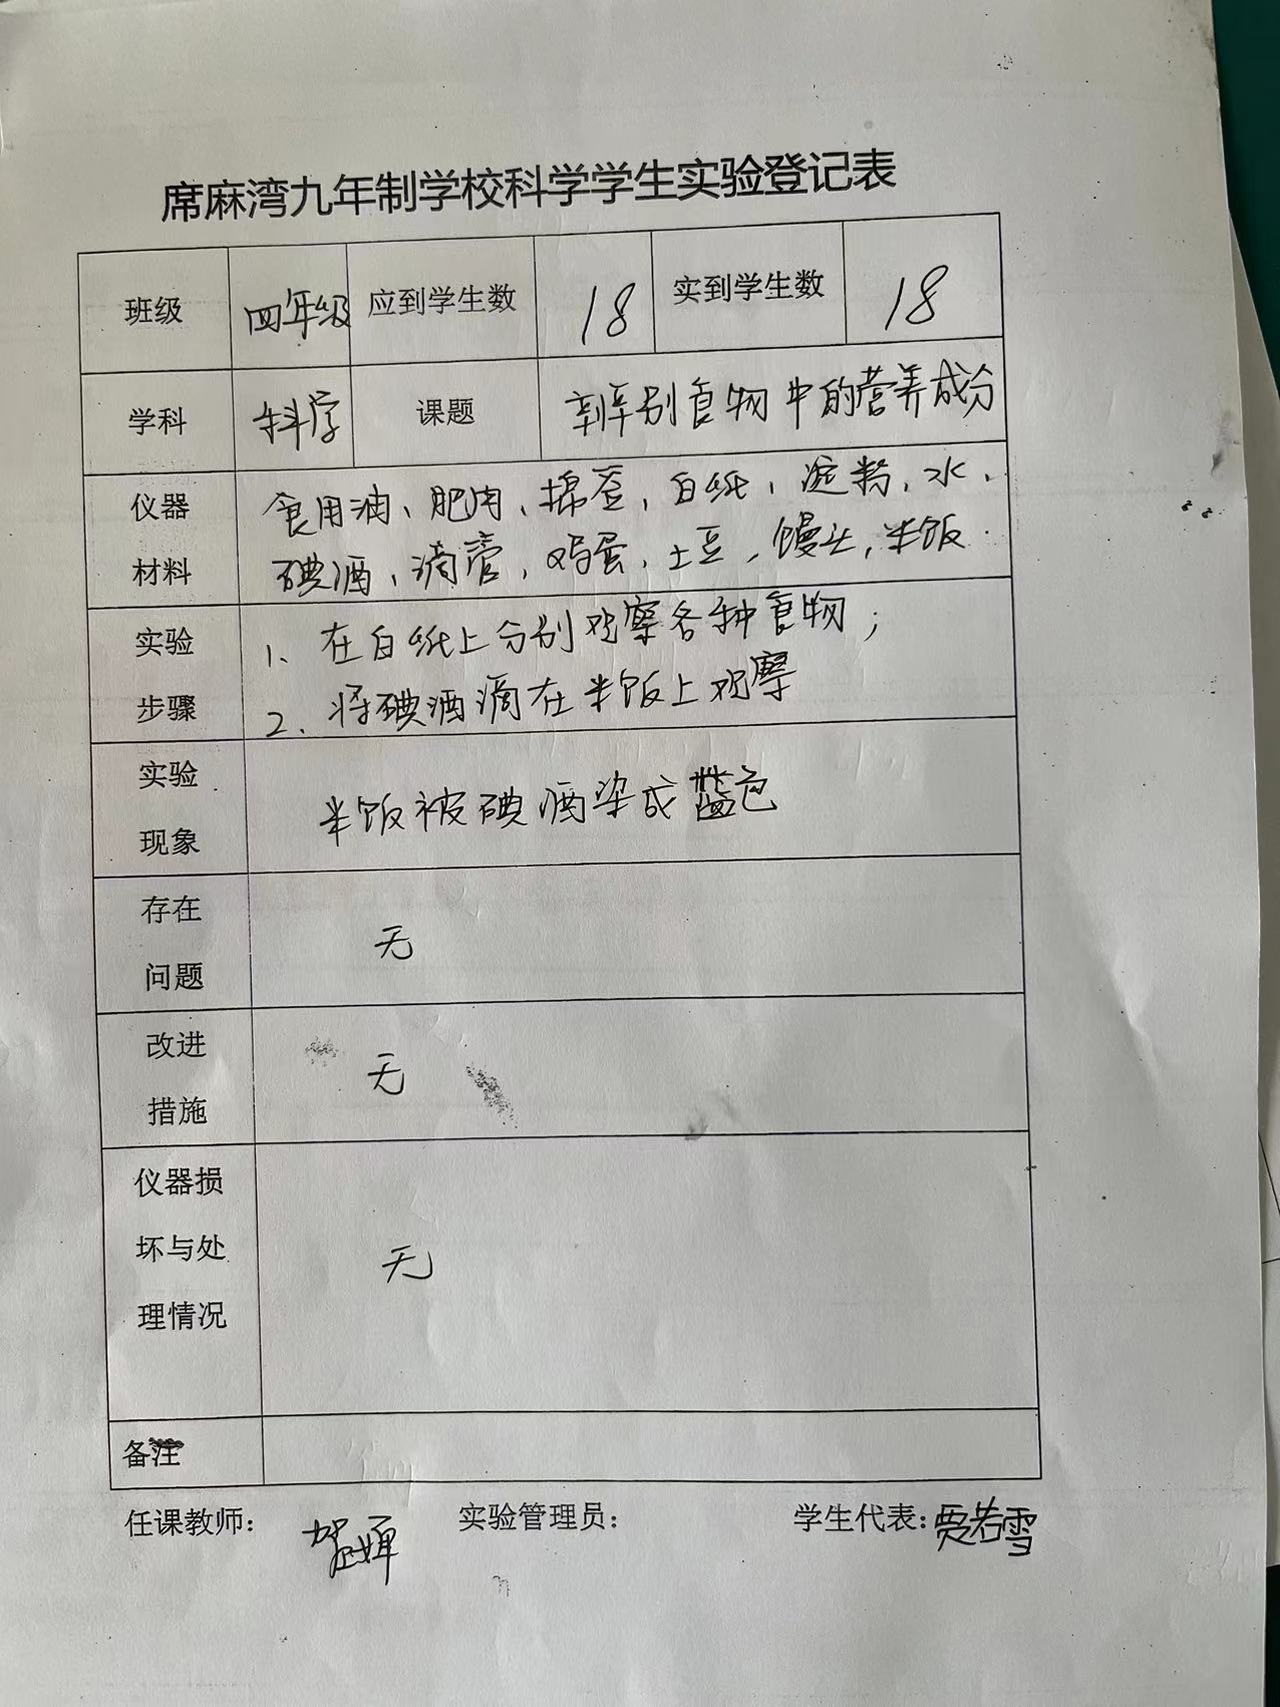 席麻湾九年制学校科学学生实验登记表
班级 四年级 应到学生数 18 实到学生数 18
学科 科学 课题 辨别食物中的营养成分
仪器 食用油、肥肉、棉签、白纸、淀粉、水、
材料 碘酒、滴管、鸡蛋、土豆、馒头、米饭.
实验 1、在白纸上分别观察各种食物；
步骤 2、将碘酒滴在米饭上观察
实验
米饭被碘酒染成蓝色
现象
存在
无
问题
改进
无
措施
仪器损
坏与处 无
理情况
备注
任课教师： 实验管理员： 学生代表：贾若雪